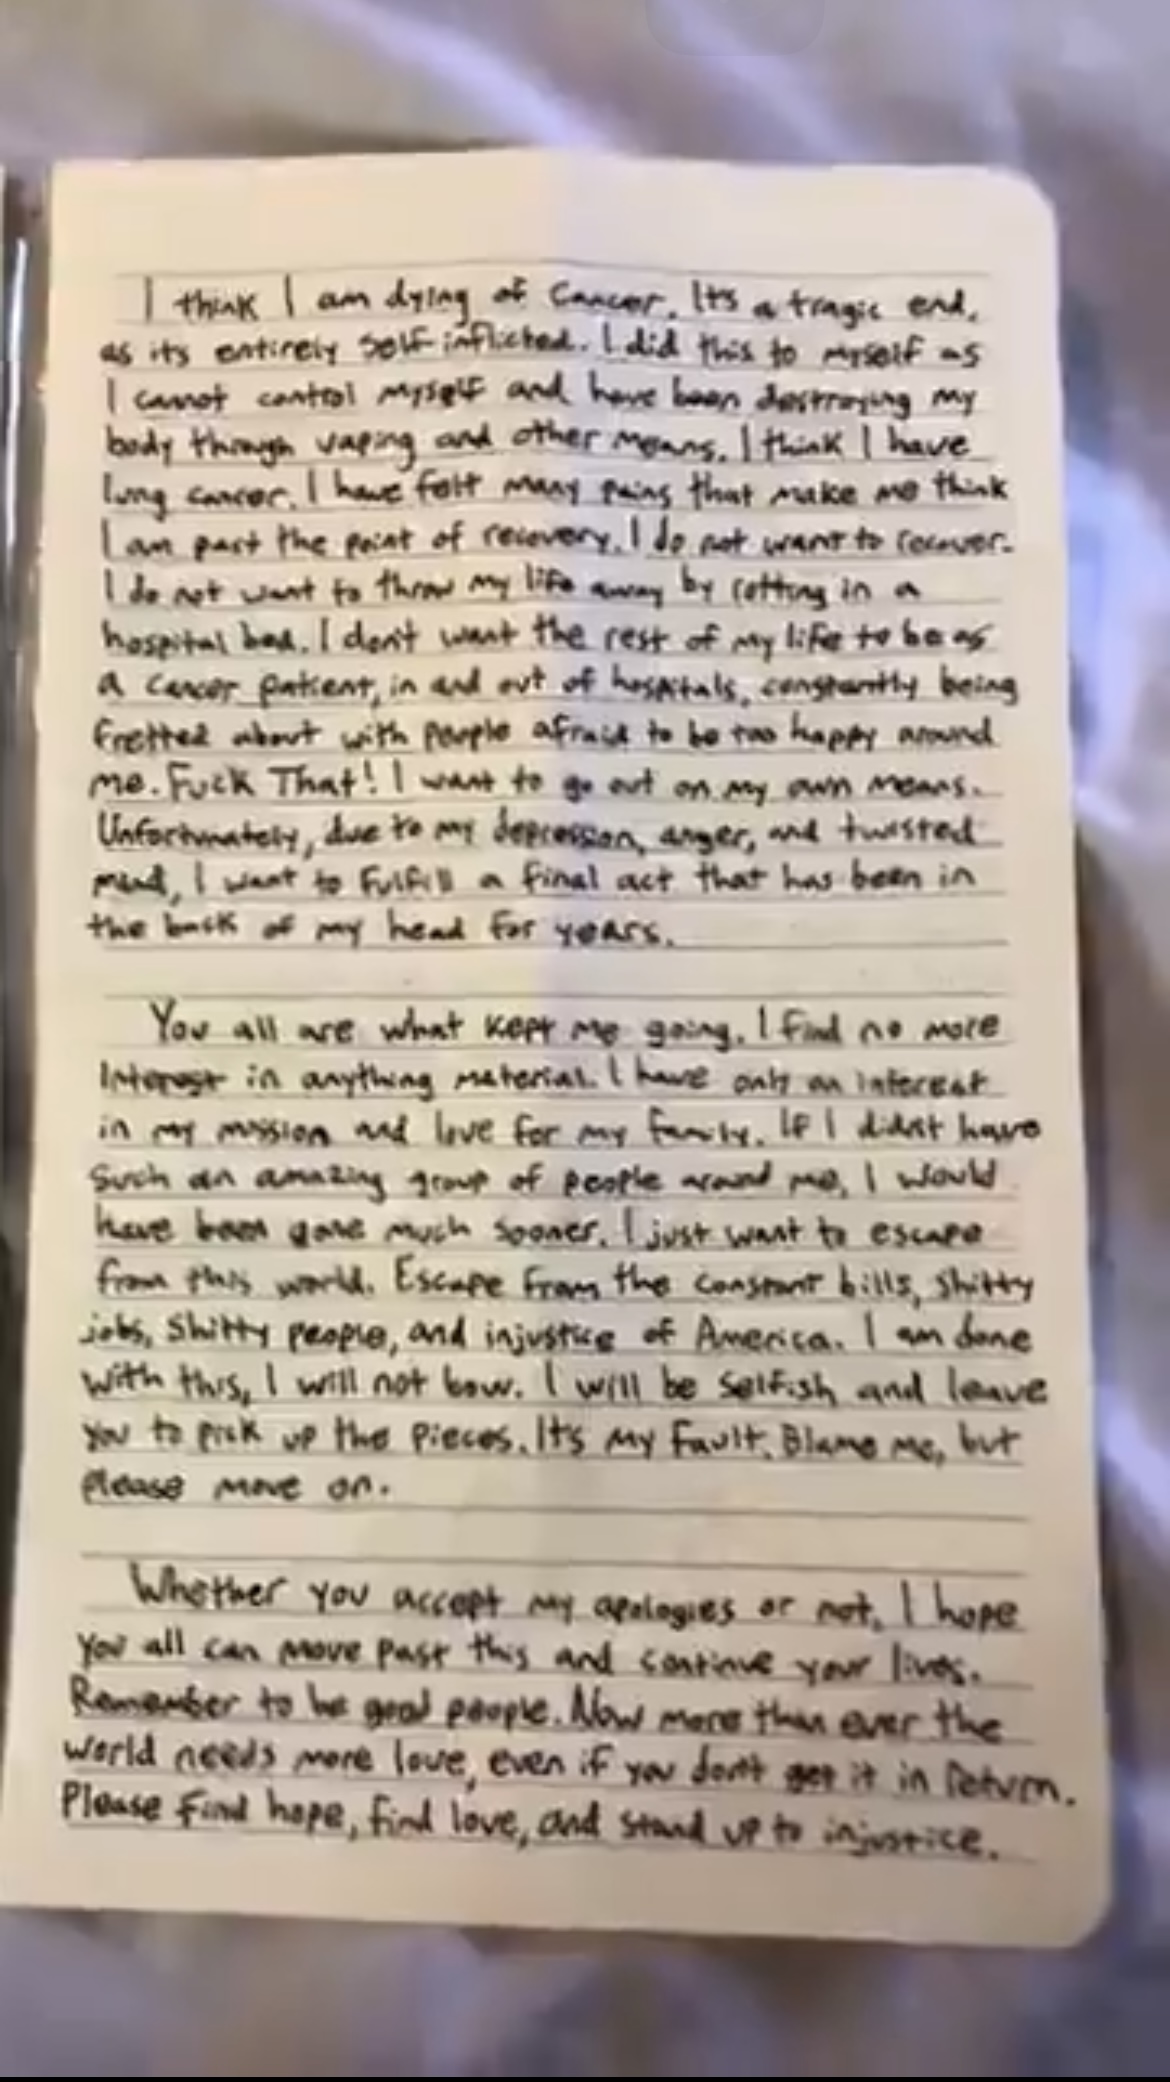 I think I am dying of Cancer. It's a tragic end,
as its entirely self-inflicted. I did this to myself as
I cannot control myself and have been destroying my
body through vaping and other means. I think I have
lung cancer. I have felt many pains that make me think
I am past the point of recovery. I do not want to recover.
I do not want to throw my life away by rotting in a
hospital bed. I don't want the rest of my life to be as
a cancer patient, in and out of hospitals, constantly being
fretted about with people afraid to be too happy around
me. Fuck That! I want to go out on my own means.
Unfortunately, due to my depression, anger, and twisted
mind, I want to fulfill a final act that has been in
the back of my head for years.
You all are what kept me going. I find no more
Interest in anything material. I have only an interest
in my mission and love for my family. If I didn't have
such an amazing group of people around me, I would
have been gone much sooner. I just want to escape
from this world. Escape from the constant bills, shitty
jobs, shitty people, and injustice of America. I am done
with this, I will not bow. I will be selfish and leave
you to pick up the pieces. It's my fault. Blame me, but
please move on.
Whether you accept my apologies or not, I hope
you all can move past this and continue your lives.
Remember to be good people. Now more than ever the
world needs more love, even if you don't get it in return.
Please find hope, find love, and stand up to injustice.